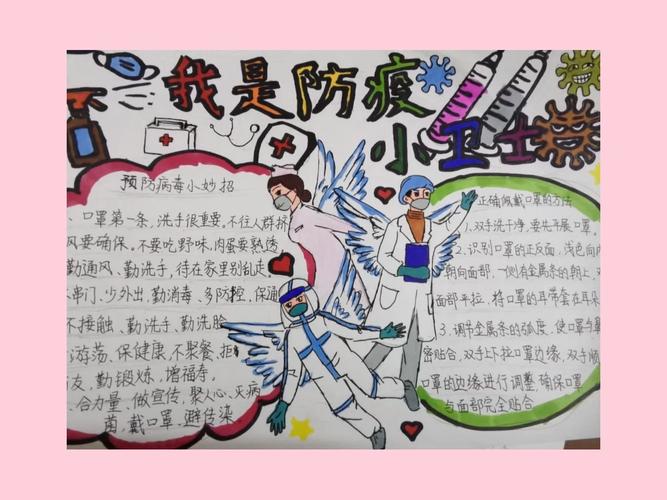 我是防疫
小卫士
预防病毒小妙招
、口罩第一条,洗手很重要。不往人群挤
风要确保。不要吃野味,肉蛋要熟透
勤通风、勤洗手,待在家里别乱走。
串门、少外出,勤消毒、多防控,保通
不接触、勤洗手、勤洗脸
游荡、保健康,不聚餐,拒
友,勤锻炼,增福寿,
合力量、做宣传,聚人心、灭病
菌,戴口罩、避传染
正确佩戴口罩的方法
1、双手洗干净,要先平展口罩。
2、识别口罩的正反面,浅色向内
朝向面部,一侧有金属条的朝上,双
面部平拉,将口罩的耳带套在耳朵
3、调节金属条的弧度,使口罩与鼻
密贴合,双手上下拉口罩边缘,双手顺
口罩的边缘进行调整,确保口罩
与面部完全贴合